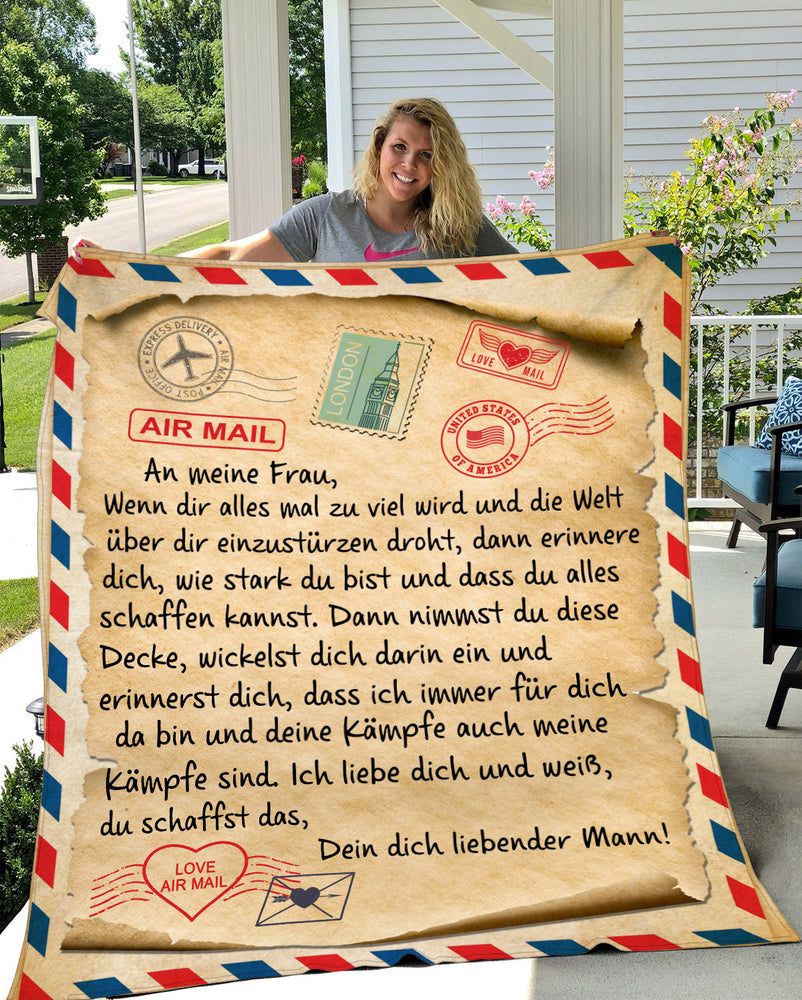 EXPRESS DELIVERY
AIR MAIL
POST OFFICE
LONDON
LOVE MAIL
AIR MAIL
UNITED STATES
OF AMERICA
An meine Frau,
Wenn dir alles mal zu viel wird und die Welt
über dir einzustürzen droht, dann erinnere
dich, wie stark du bist und dass du alles
schaffen kannst. Dann nimmst du diese
Decke, wickelst dich darin ein und
erinnerst dich, dass ich immer für dich
da bin und deine Kämpfe auch meine
Kämpfe sind. Ich liebe dich und weiß,
du schaffst das,
Dein dich liebender Mann!
LOVE
AIR MAIL